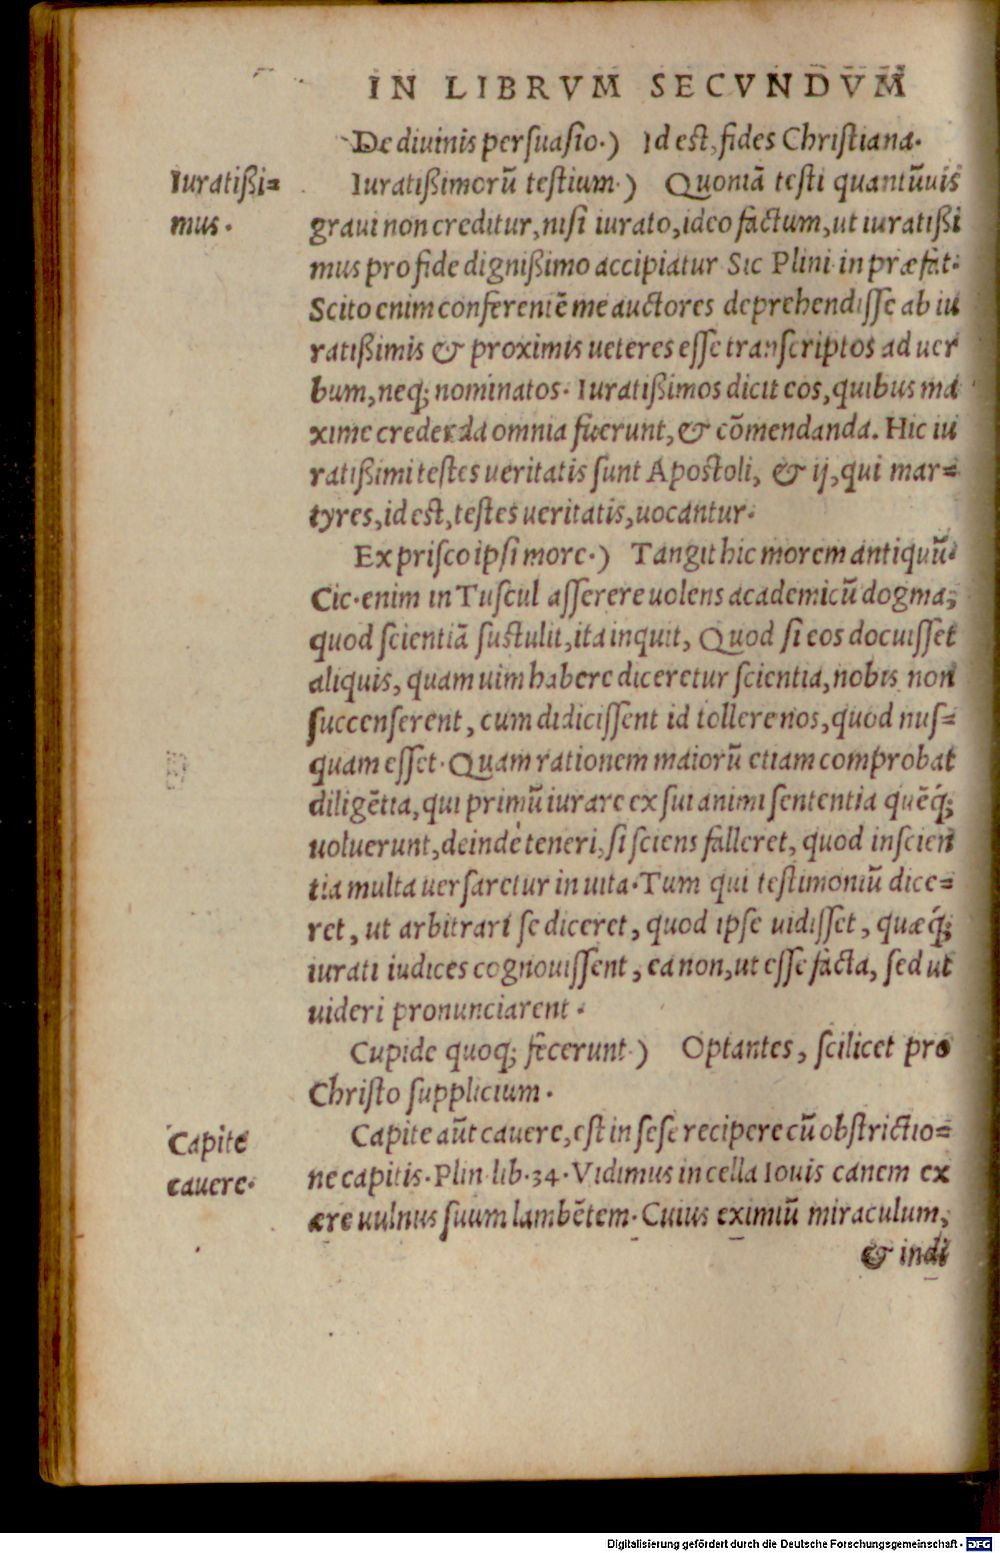 IN LIBRVM SECVNDVM
De diuinis persuasio.) Id est, fides Christiana.
Iuratißi=
mus.
Iuratißimorū testium.) Quoniā testi quantūuis
graui non creditur, nisi iurato, ideo factum, ut iuratißi
mus pro fide dignißimo accipiatur Sic Plini in præfat.
Scito enim conferentē me auctores deprehendisse ab iu
ratißimis & proximis ueteres esse transcriptos ad uer
bum, neq; nominatos. Iuratißimos dicit eos, quibus ma
xime credenda omnia fuerunt, & cōmendanda. Hic iu
ratißimi testes ueritatis sunt Apostoli, & ij, qui mar=
tyres, id est, testes ueritatis, uocantur.
Ex prisco ipsi more.) Tangit hic morem antiquū.
Cic. enim in Tuscul asserere uolens academicū dogma,
quod scientiā sustulit, ita inquit, Quod si eos docuisset
aliquis, quam uim habere diceretur scientia, nobis non
succenserent, cum didicissent id tollere nos, quod nus=
quam esset. Quam rationem maiorū etiam comprobat
diligētia, qui primū iurare ex sui animi sententia quēq́;
uoluerunt, deinde teneri, si sciens falleret, quod inscien
tia multa uersaretur in uita. Tum qui testimoniū dice=
ret, ut arbitrari se diceret, quod ipse uidisset, quæq́;
iurati iudices cognouissent, ea non, ut esse facta, sed ut
uideri pronunciarent.
Cupide quoq; fecerunt.) Optantes, scilicet pro
Christo supplicium.
Capite
cauere.
Capite aūt cauere, est in sese recipere cū obstrictio=
ne capitis. Plin lib. 34. Vidimus in cella Iouis canem ex
ære uulnus suum lambētem. Cuius eximiū miraculum,
& indi
Digitalisierung gefördert durch die Deutsche Forschungsgemeinschaft - DFG